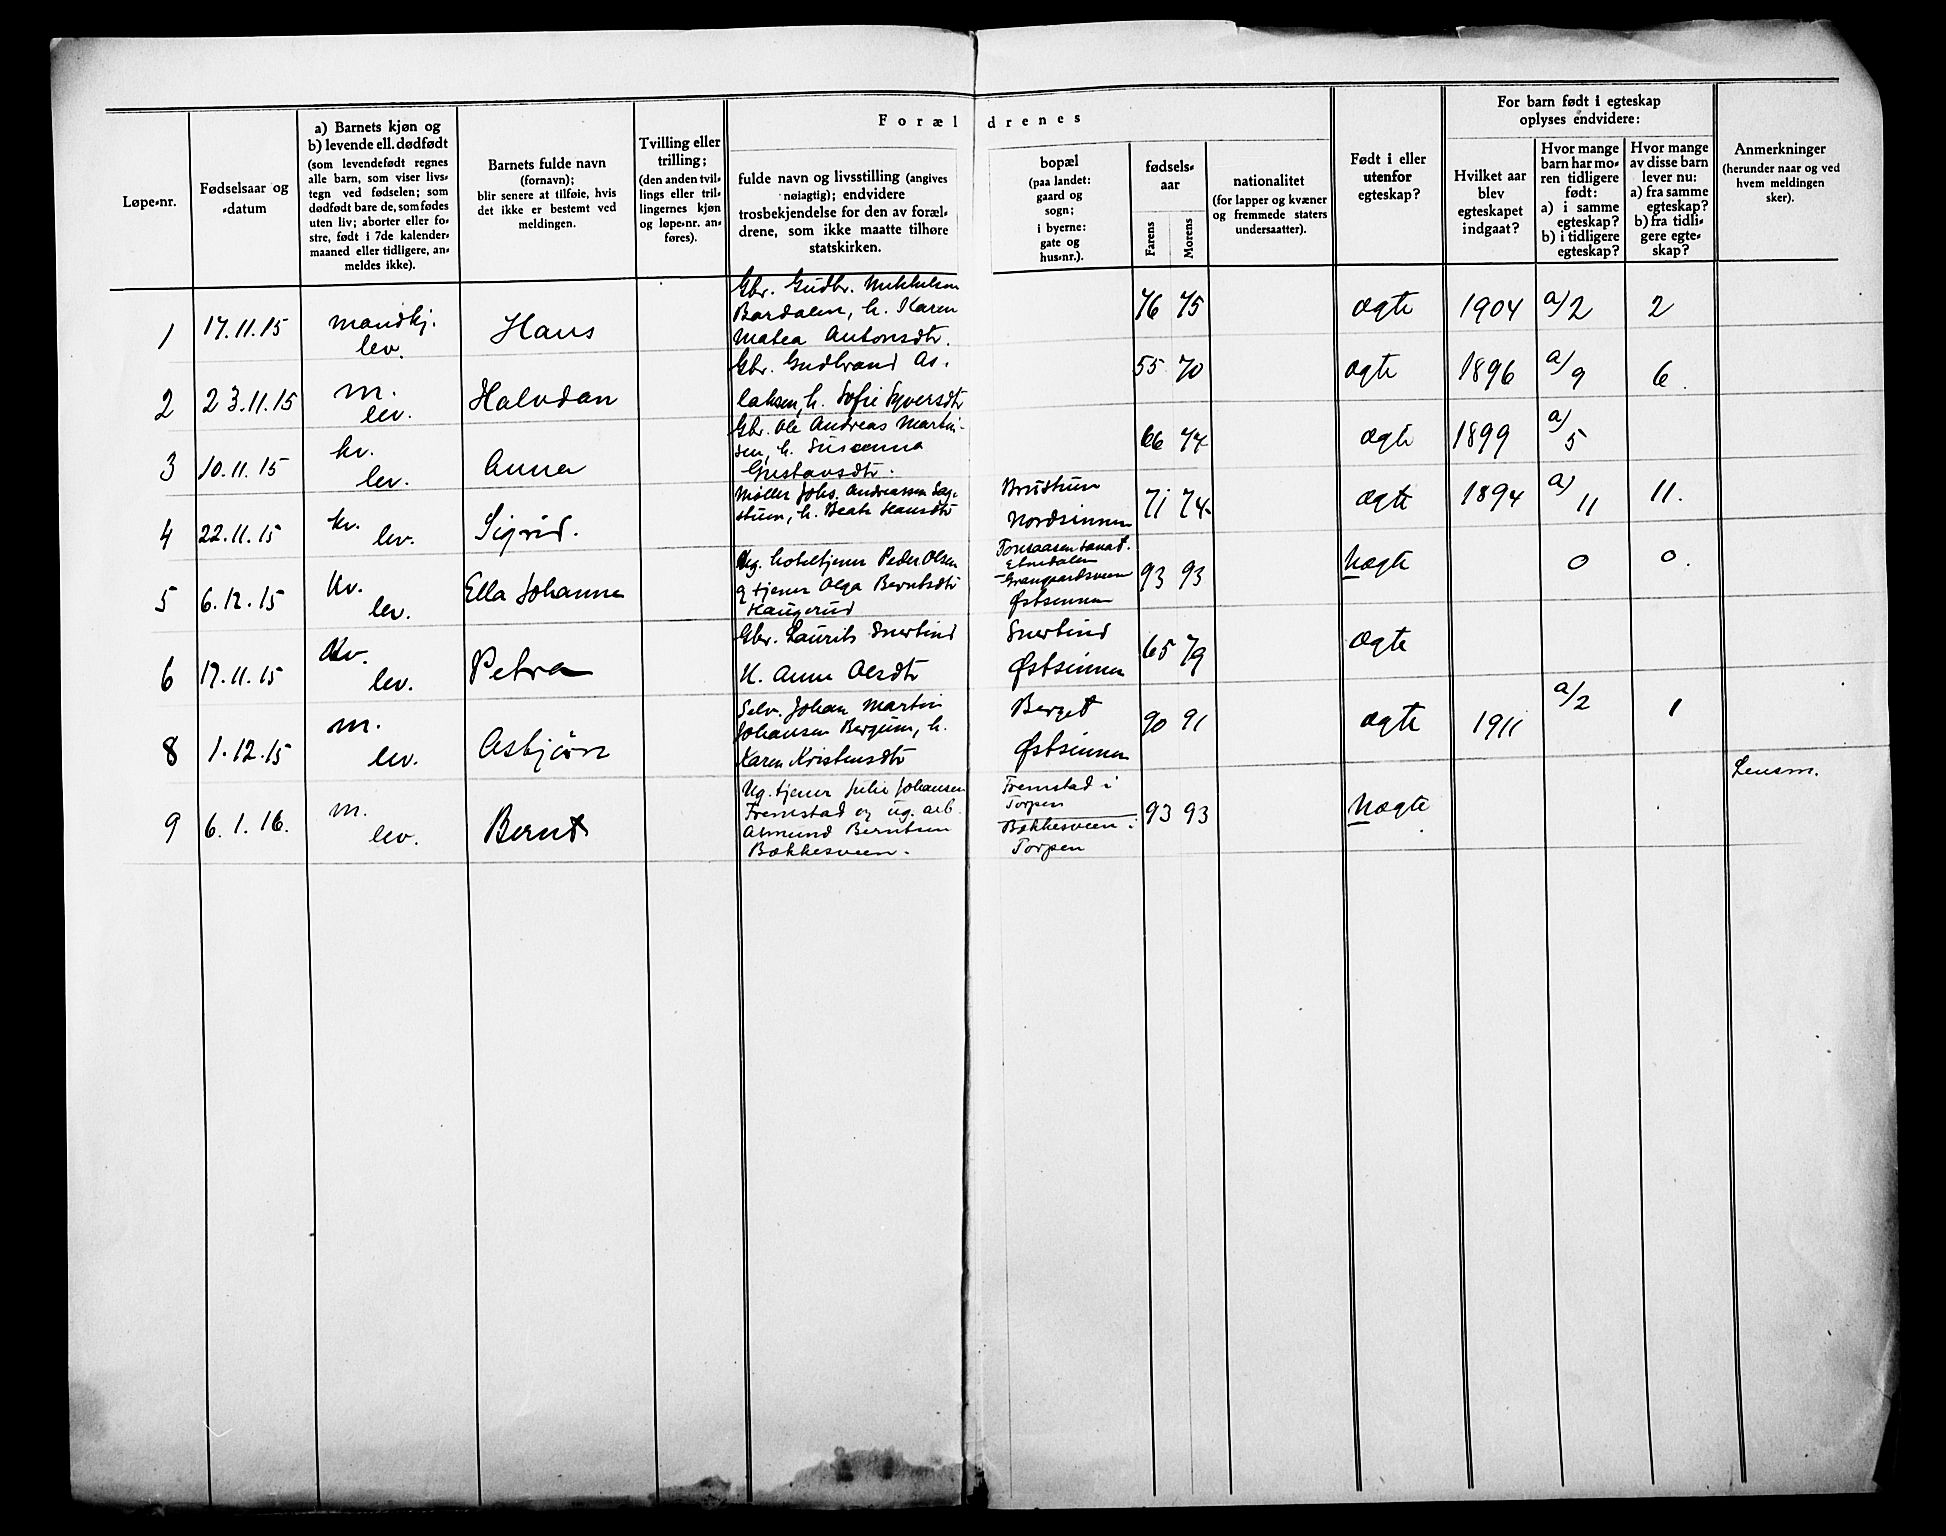 Forældrenes
For barn født i egteskap
oplyses endvidere:
Løpe-nr.
Fødselsaar og
-datum
a) Barnets kjøn og
b) levende ell. dødfødt
(som levendefødt regnes
alle barn, som viser livs-
tegn ved fødselen; som
dødfødt bare de, som fødes
uten liv; aborter eller fo-
stre, født i 7de kalender-
maaned eller tidligere, an-
meldes ikke).
Barnets fulde navn
(fornavn);
blir senere at tilføie, hvis
det ikke er bestemt ved
meldingen.
Tvilling eller
trilling;
(den anden tvil-
lings eller tril-
lingernes kjøn
og løpe-nr. an-
føres).
fulde navn og livsstilling (angives
nøiagtig); endvidere
trosbekjendelse for den av foræl-
drene, som ikke maatte tilhøre
statskirken.
bopæl
(paa landet:
gaard og
sogn;
i byerne:
gate og
hus-nr.).
fødsels-
aar
Farens
Morens
nationalitet
(for lapper og kvæner
og fremmede staters
undersaatter).
Født i eller
utenfor
egteskap?
Hvilket aar
blev
egteskapet
indgaat?
Hvor mange
barn har mo-
ren tidligere
født:
a) i samme
egteskap?
b) i tidligere
egteskap?
Hvor mange
av disse barn
lever nu:
a) fra samme
egteskap?
b) fra tidli-
gere egte-
skap?
Anmerkninger
(herunder naar og ved
hvem meldingen
sker).
1
17.11.15
mandkj.
lev.
Hans
Gbr. Gudbr. Mikkelsen
Bardalen, h. Karen
Matea Antonsdtr.
76 75
ægte
1904
a/2
2
2
23.11.15
m.
lev.
Halvdan
Gbr. Gudbrand As-
laksen, h. Sofie Syversdtr
55 70
ægte
1896
a/9
6.
3
10.11.15
kv.
lev.
Anna
Gbr. Ole Andreas Martin-
sen, h. Susanna
Gustavsdtr.
66 74
ægte
1899
a/5
4
22.11.15
kv.
lev.
Sigrid.
Møller Johs. Andreassen
h. Beate Hansdtr
Nordsinnen
71 74
ægte
1894
a/11
11.
5
6.12.15
kv.
lev.
Ella Johanne
Ug. hoteltjener Peder Olsen
og tjener Olga Berntsdtr
Haugerud
Tonsaasen Sanat.
Etnedalen
Østsinnen
93 93
Uægte
0
0.
6
17.11.15
kv.
lev.
Petra
Gbr. Laurits Snertind
H. Anne Olsdtr
Snertind
Østsinnen
65 79
ægte
8
1.12.15
m.
lev.
Asbjørn
Selv. Johan Martin
Johansen Bergum, h.
Karen Kristensdtr
Berget
Østsinnen
90 91
ægte
1911
a/2
1
9
6.1.16.
m.
lev.
Bernt
Ug. tjener Julie Johansen
Fremstad og ug. arb.
Asmund Berntsen
Bækkesveen.
Fremstad i
Torpen
Bækkesveen i
Torpen
93 93
Uægte
Lensm.